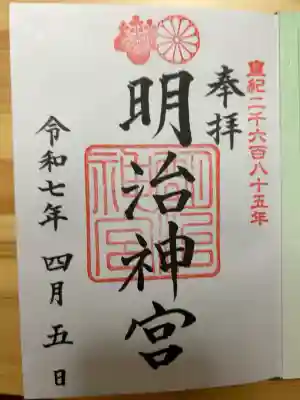 皇紀二千六百八十五年
奉拝
明治神宮
明治神宮
令和七年 四月 五 日